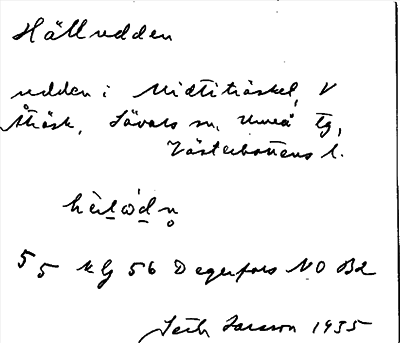 Hälludden
udden i Mittiträsket, V
Åträsk, Sävars sn, Umeå tg,
Västerbottens l.
hèlòdn̥
55 kg 56 Degerfors NO B2
Seth Larsson 1935